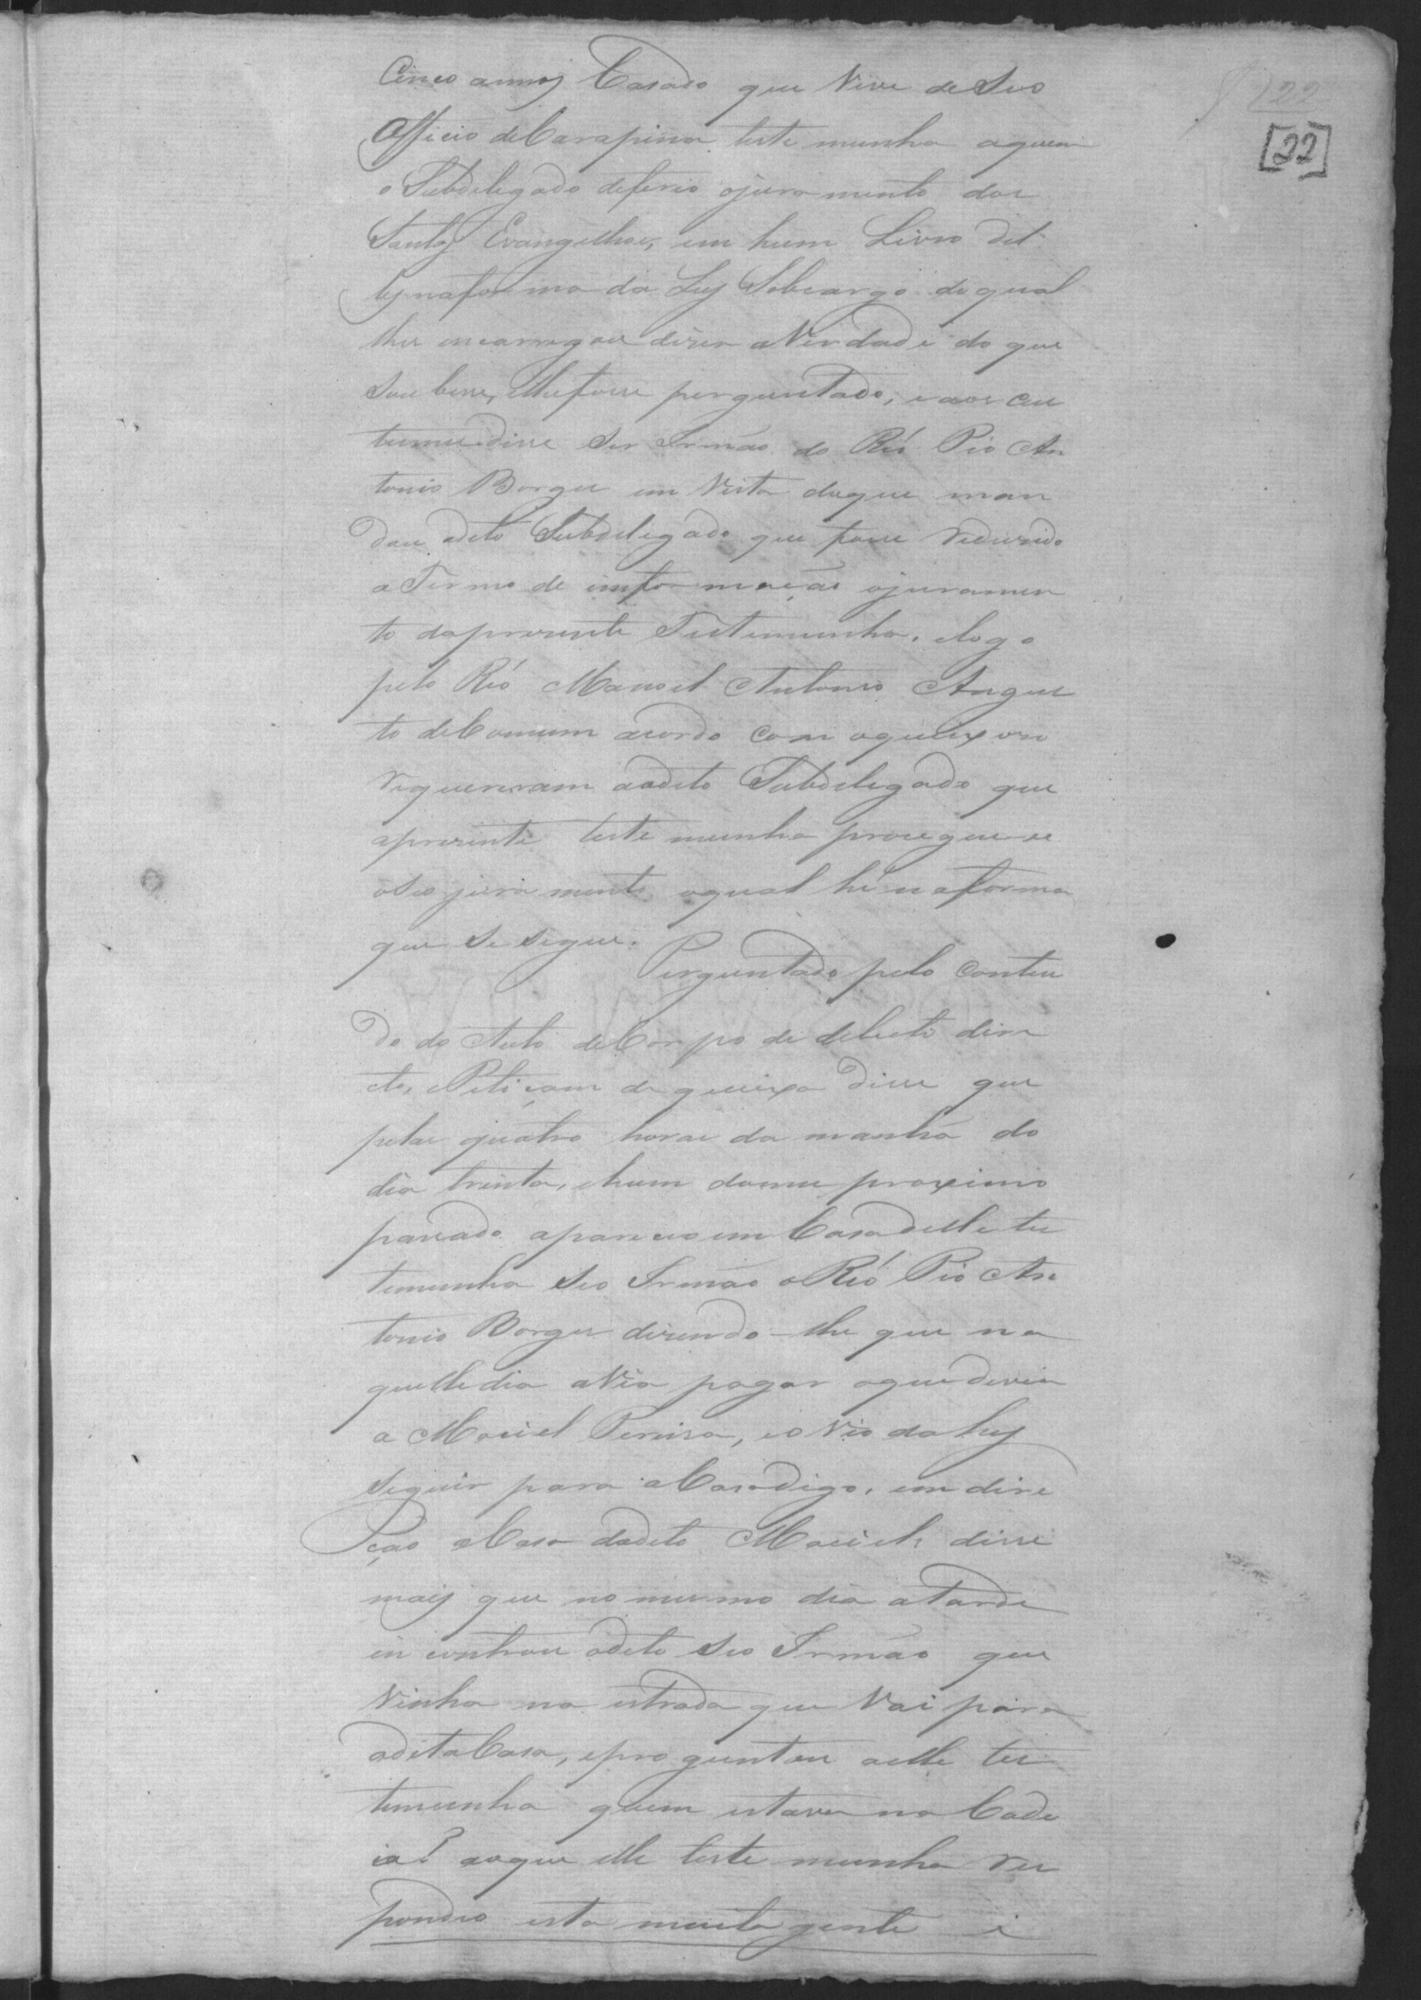 22
[22]
Cinco annos Casado que Vive de Seo
Officio de Carapina testemunha aquem
o Subdelegado deferio ojuramento dos
Santos Evangelhos, em hum Livro del
les naforma da Ley Sobcargo do qual
lhe encarregou dizer aVerdade do que
soubesse, elhefosse perguntado, eaos cus
tumes disse Ser Irmão do Réo Pio An
tonio Borges em Vista doque man
dou odito Subdelegado que fosse reduzido
aTermo de informação ojuramen
to dapresente Testemunha, elogo
pelo Réo Manoel Antonio Augus
to deComum acordo com oqueixoso
requereram aodito Subdelegado que
apresente testemunha proseguisse
oSeo juramento oqual hé naforma
que se segue.
Perguntado pelo Conteu
do do Auto deCorpo de delicto dire
cto, ePetiçam de queixa disse que
pelas quatro horas da manhã do
dia trinta, ehum domes proximo
passado apareceo em Casa delle tes
temunha Seo Irmão oRéo Pio An
tonio Borges dizendo-lhe que na
quelle dia aVia pagar oque devia
a Maciel Pereira, eo Vio dahy
Seguir para aCasa digo, em dire
ção aCasa dodito Maciel, disse
mais que no mesmo dia aTarde
encontrou odito Seo Irmão que
Vinha na estrada que Vai para
adita Casa, eproguntou aelle tes
temunha quem estava na Cade
ia? aoque elle testemunha res
pondeo esta muita gente e